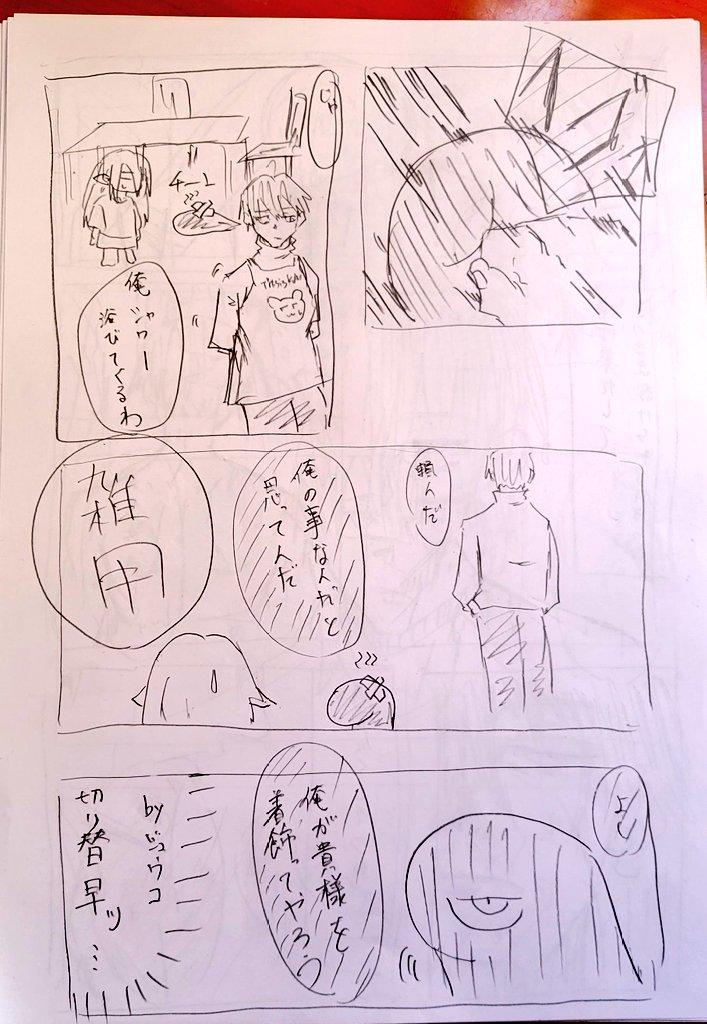 バキ
チーン
俺
シャワー
浴びてくるわ
頼んだ
俺の事なんだと
思ってんだ
雑用
よし
俺が貴様を
着飾ってやろう
byジュウコ
切り替早ッ…